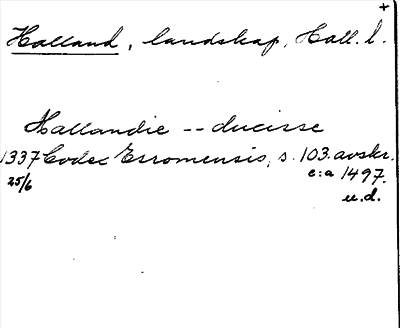 +
Halland, landskap, Hall. l.
Hallandie -- ducisse
1337 Codex Esromensis, s. 103. avskr.
25/6 c:a 1497.
u.d.